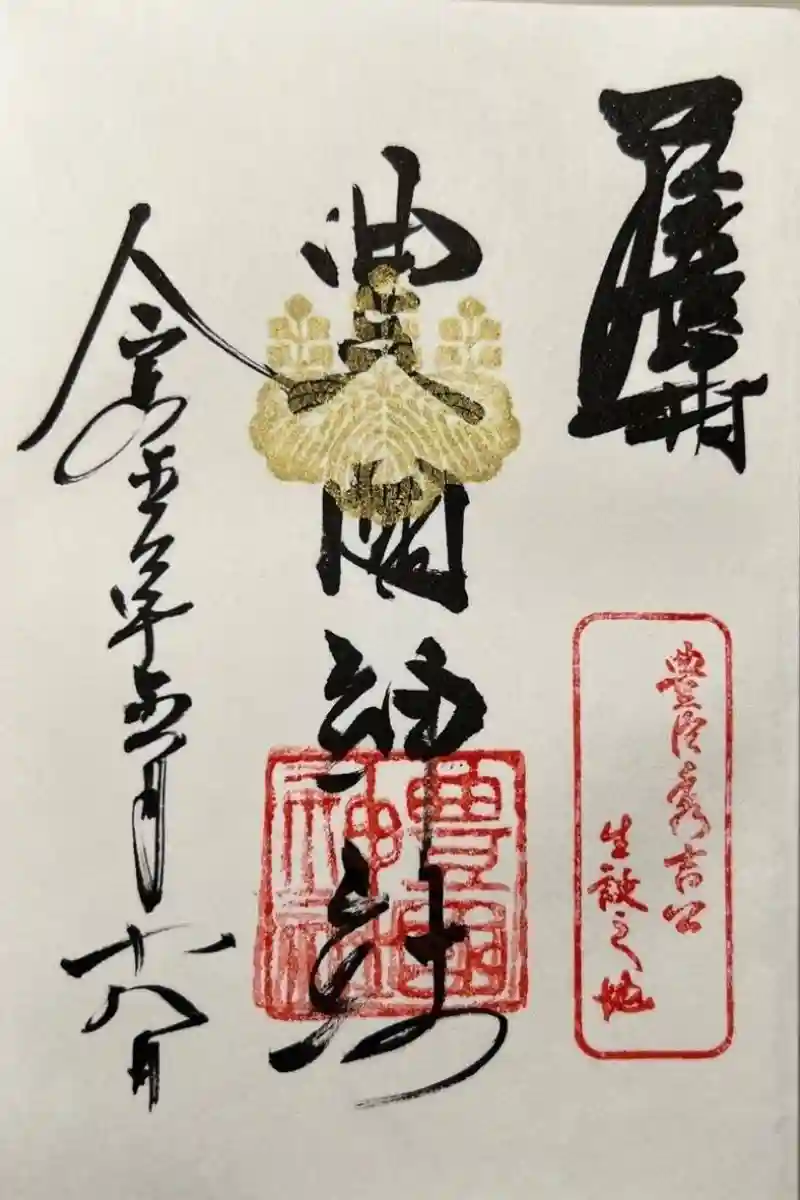 豊國神社
豊臣秀吉公
生誕之地
豊國
神社
令和五年五月十八日